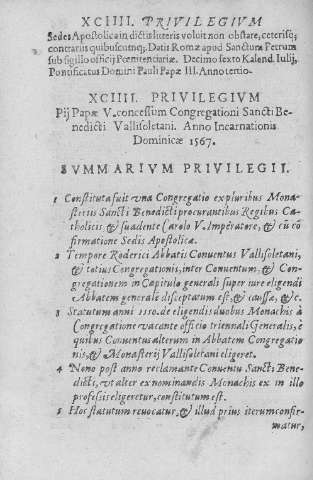 XCIIII. PRIVILEGIVM
Sedes Apostolica in dictis literis voluit non obstare, ceterisq;
contrariis quibuscunq; Datis Romæ apud Sanctum Petrum
sub sigillo officij Pœnitenciariæ. Decimo sexto Kalend. Iulij,
Pontificatus Domini Pauli Papæ III. Anno tertio.
XCIIII. PRIVILEGIVM
Pij Papæ V. concessum Congregationi Sancti Be-
nedicti Vallisoletani. Anno Incarnationis
Dominicæ 1567.
SVMMARIVM PRIVILEGII.
1 Constituta fuit vna Congregatio ex pluribus Mona-
steriis Sancti Benedicti procurantibus Regibus Ca-
tholicis & suadente Carolo V. Impératore, & cū cō
firmatione Sedis Apostolicæ.
2 Tempore Roderici Abbatis Conuentus Vallisoletani,
& totius Congregationis, inter Conuentum, & Con-
gregationem in Capitulo generali super iure eligendi
Abbatem generale disceptatum est, & caussæ, &c.
3 Statutum anni 1550. de eligendis duobus Monachis à
Congregatione vacante officio triennali Generalis, è
quibus Conuentus alterum in Abbatem Congregatio
nis, & Monasterij Vallisoletani eligeret.
4 Nono post anno reclamante Conuentu Sancti Bene-
dicti, vt alter ex nominandis Monachis ex in illo
professis eligeretur, constitutum est.
5 Hoc statutum reuocatur, & illud prius iterum confir-
matur,